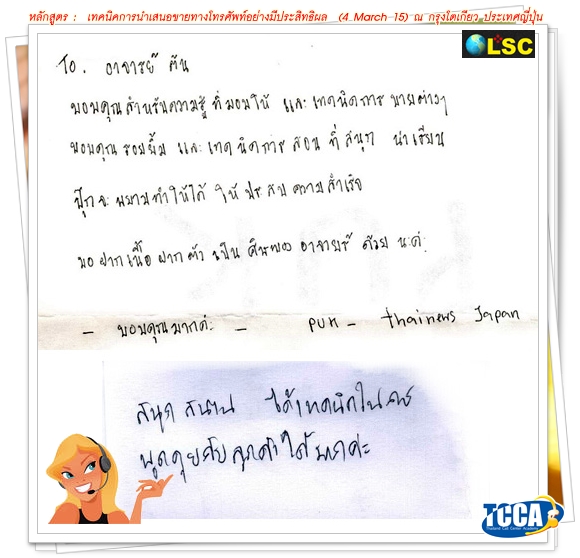 หลักสูตร : เทคนิคการนำเสนอขายทางโทรศัพท์อย่างมีประสิทธิผล (4 March 15) ณ กรุงโตเกียว ประเทศญี่ปุ่น
LSC
To. อาจารย์ ตัน
ขอบคุณสำหรับความรู้ ที่มอบให้ และเทคนิคการ ขายต่างๆ
ขอบคุณรอยยิ้ม และ เทคนิคการ สอน ที่ สนุก น่าเรียน
ปุ๊กจะ พยายามทำให้ได้ ให้ ประสบ ความสำเร็จ
ขอ ฝากเนื้อ ฝากตัว เป็น ศิษย์ของ อาจารย์ ด้วย นะค่ะ
- ขอบคุณมากค่ะ - PUK - thainews Japan
สนุก สนาน ได้เทคนิคในการ
พูดคุยกับลูกค้าได้มากค่ะ
TCCA